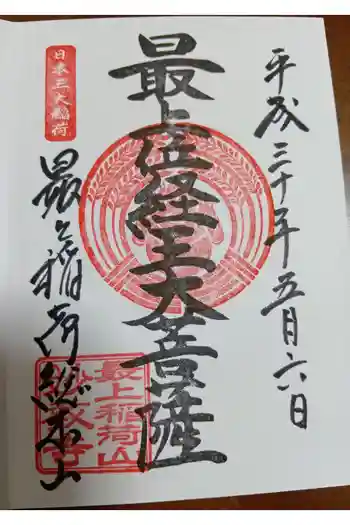 平成三十年五月六日
最上位経王大菩薩
日本三大稲荷
最上稲荷総本山
最上稲荷山
妙教寺